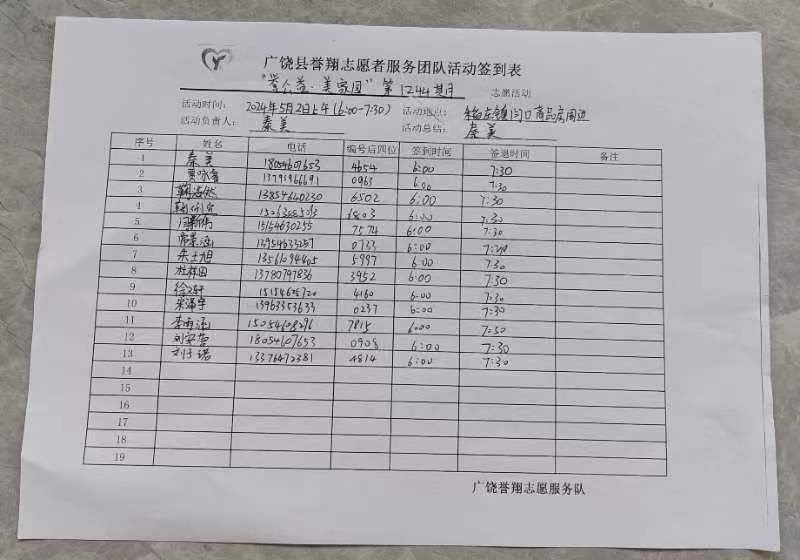 广饶县誉翔志愿者服务团队活动签到表
"誉公益·美家园"第1244期 志愿活动
活动时间: 2024年5月2日上午(6:00-7:30) 活动地点: 稻庄镇闫口商品房周边
活动负责人: 秦美 活动总结: 秦美
序号 姓名 电话 编号后四位 签到时间 签退时间 备注
1 秦美 18054607653 4654 6:00 7:30
2 13791966691 0963 6:00 7:30
3 13854640230 6502 6:00 7:30
4 6803 6:00 7:30
5 15154630255 7574 6:00 7:30
6 0133 6:00 7:30
7 13561094405 5997 6:00 7:30
8 13780797836 3952 6:00 7:30
9 4160 6:00 7:30
10 宋泽宇 13963353633 0237 6:00 7:30
11 15054608296 7815 6:00 7:30
12 18054607653 0908 6:00 7:30
13 刘子诺 13376472381 4814 6:00 7:30
14
15
16
17
18
19
广饶誉翔志愿服务队